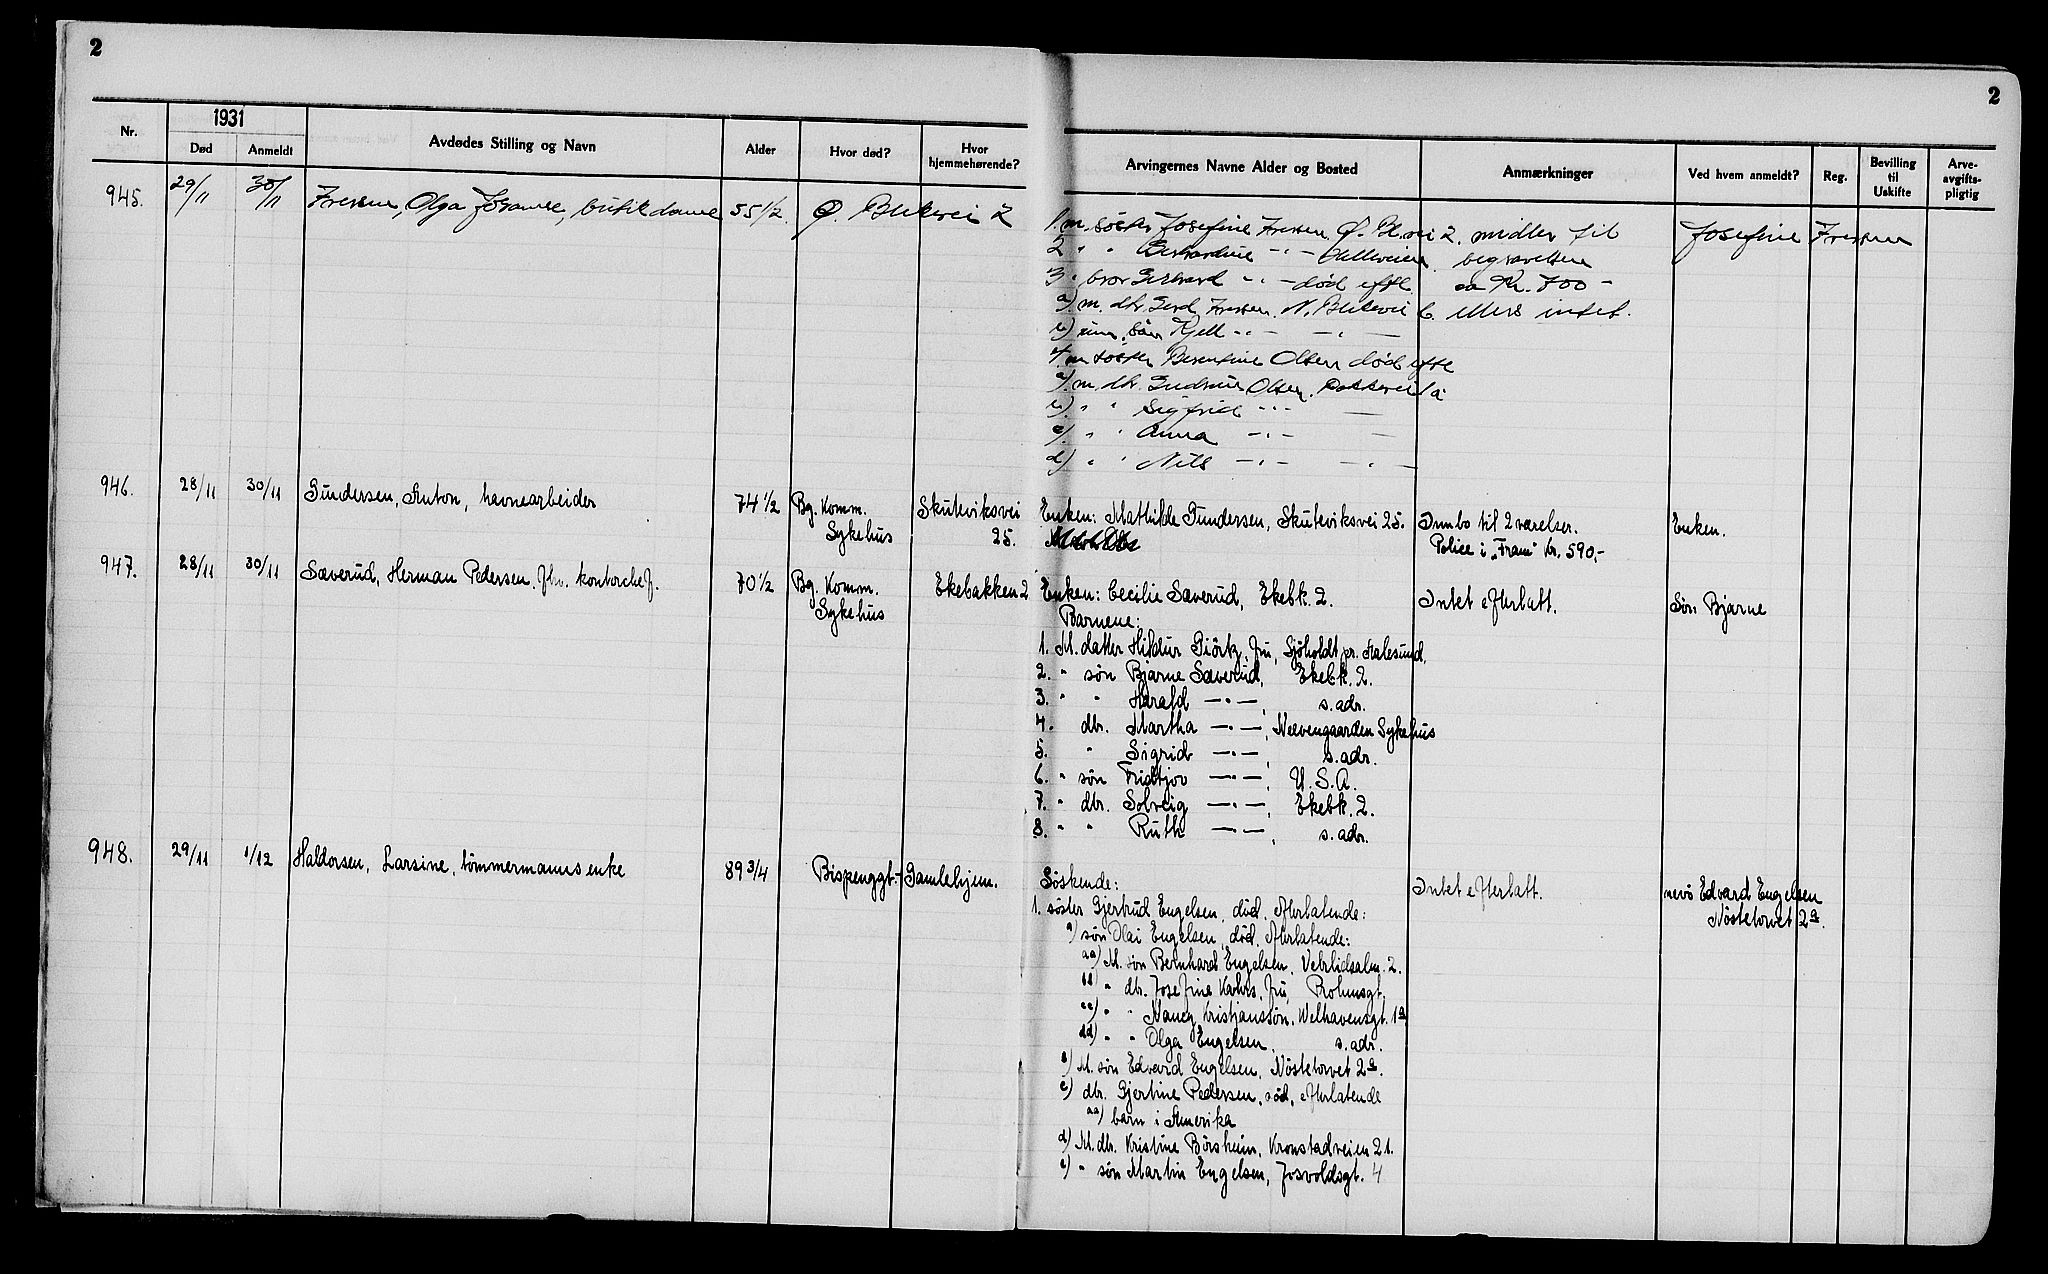 2
2
Nr. 1931 Død Anmeldt Avdødes Stilling og Navn Alder Hvor død? Hvor hjemmehørende? Arvingernes Navne Alder og Bosted Anmærkninger Ved hvem anmeldt? Reg. Bevilling til Uskifte Arve-avgifts-pligtig
945. 29/11 30/11 Olga butikdame 55 1/2 Ø. Blekevei 2
1. m. søster Josefine Ø. Bl.vei 2. midler til Josefine
2 " " begravelsen
3 " bror død efts. ca Kr. 700 -
a) m. dtr. Gerd N. Blekevei 6. ellers intet.
b) um. søn Kjell
4. m. søster Berentine Olsen død efts
a) m. dtr. Olsen
b) " " Sigfrid
c) " " Anna
d) " " Nils
946. 28/11 30/11 Gundersen, Anton, havnearbeider 74 1/2 Bg. Komm. Sykehus Skuteviksvei 25.
Enken: Mathilde Gundersen, Skuteviksvei 25. Innbo til 2 værelser. Enken.
Police i "Fram" Kr. 590,-
947. 28/11 30/11 Sæverud, Herman Pedersen, fhv. kontorchef. 70 1/2 Bg. Komm. Sykehus Ekebakken 2
Enken: Cecilie Sæverud, Ekebk. 2. Intet efterlatt. Søn Bjarne
Barnene:
1. M. datter Hildur fru, Sjöholdt pr. Aalesund.
2. " søn Bjarne Sæverud, Ekebk. 2.
3. " " Harald —"—, s. adr.
4. dtr. Martha —"—, Neevengaarden Sykehus
5. " Sigrid —"—, s. adr.
6. " søn Fridtjov —"—, U. S. A.
7. " dtr. Solveig —"—, Ekebk. 2.
8. " " Ruth —"—, s. adr.
948. 29/11 1/12 Haldorsen, Larsine, tömmermanns enke 89 3/4 Bispenggt.- Gamlehjem.
Søskende: Intet efterlatt. nevö Edvard Engelsen
1. søster Gjertrud Engelsen, död, efterlatende: Nöstetorvet 2a.
a) søn Olai Engelsen, död, efterlatende:
aa) M. søn Bernhard Engelsen, Vetrlidsalm. 2.
bb) " dtr. Josefine fru,
cc) " " Nancy Kristjanssön, Welhavensgt. 1a
dd) " " Olga Engelsen, s. adr.
b) M. søn Edvard Engelsen, Nöstetorvet 2a.
c) dtr. Gjertine Pedersen, död, efterlatende
aa) barn i Amerika
d) M. dtr. Kristine Börsheim, Kronstadveien 21.
e) " søn Martin Engelsen, Josvoldsgt. 4